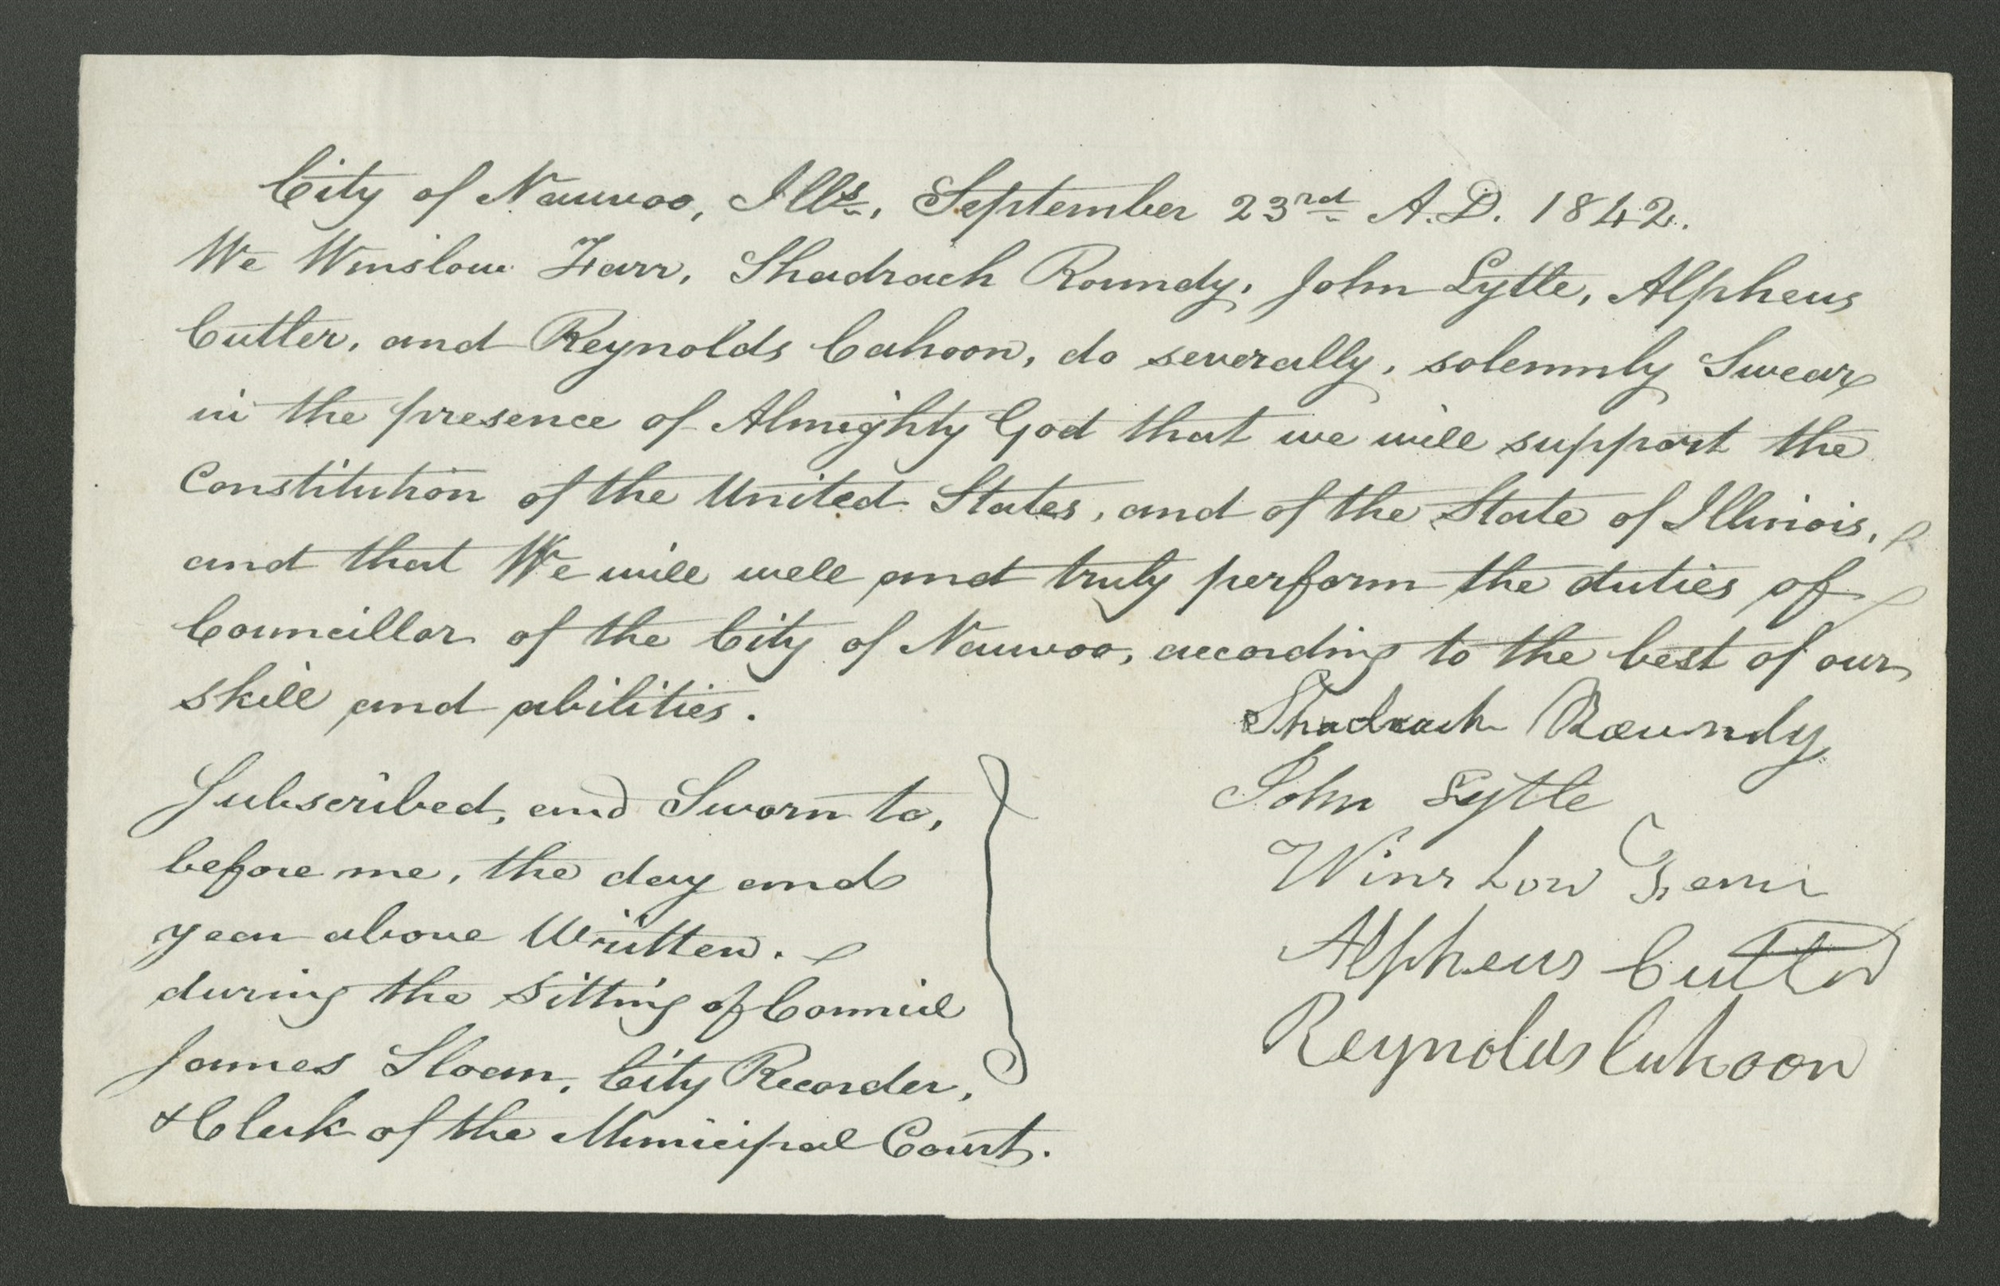 City of Nauvoo, Ills, September 23rd A.D. 1842.
We Winslow Farr, Shadrach Roundy, John Lytle, Alpheus
Cutler, and Reynolds Cahoon, do severally, solemnly Swear
in the presence of Almighty God that we will support the
Constitution of the United States, and of the State of Illinois,
and that We will well and truly perform the duties of
Councillor of the City of Nauvoo, according to the best of our
skill and abilities.
Shadrach Roundy
John Lytle
Winslow Farr
Alpheus Cutler
Reynolds Cahoon
Subscribed, and Sworn to,
before me, the day and
year above Written.
during the sitting of Council
James Sloan, City Recorder,
& Clerk of the Municipal Court.